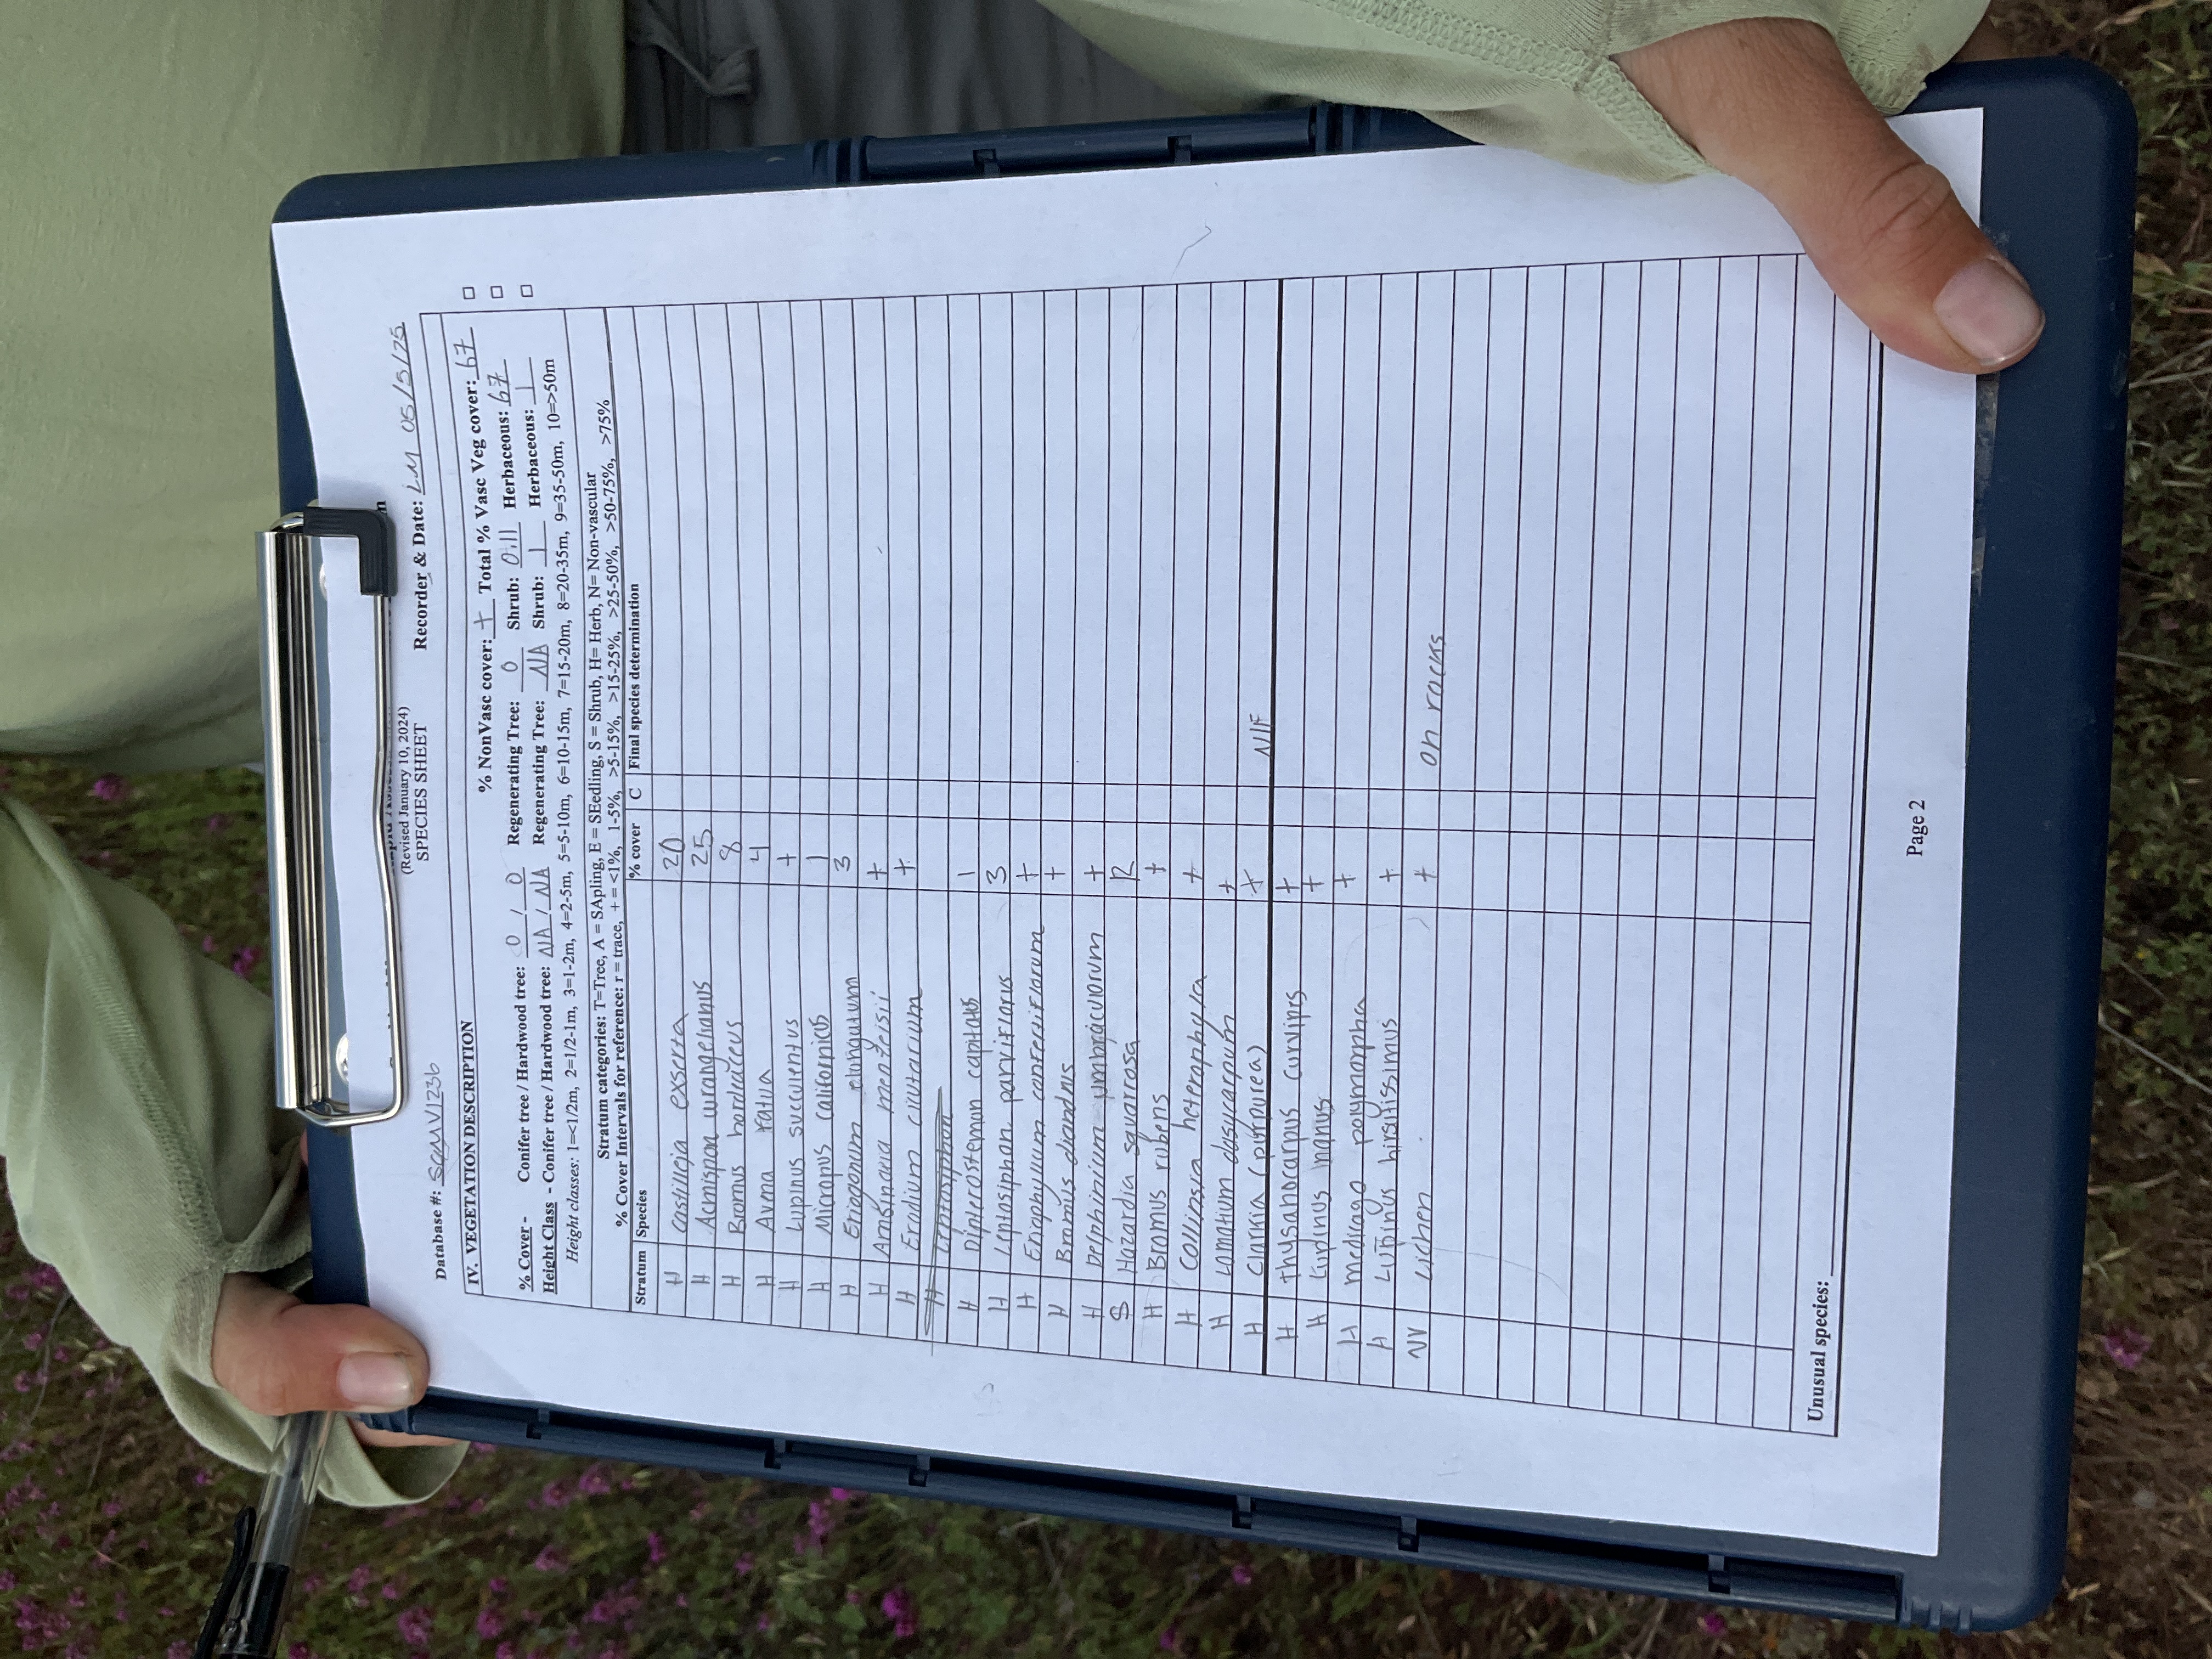 (Revised January 10, 2024)
SPECIES SHEET
Database #: SCMV1236 Recorder & Date: LM 05/5/25
IV. VEGETATION DESCRIPTION
% NonVasc cover: + Total % Vasc Veg cover: 67
% Cover - Conifer tree / Hardwood tree: 0 / 0 Regenerating Tree: 0 Shrub: 0.11 Herbaceous: 67
Height Class - Conifer tree / Hardwood tree: NA / NA Regenerating Tree: NA Shrub: 1 Herbaceous: 1
Height classes: 1=<1/2m, 2=1/2-1m, 3=1-2m, 4=2-5m, 5=5-10m, 6=10-15m, 7=15-20m, 8=20-35m, 9=35-50m, 10=>50m
Stratum categories: T=Tree, A = SApling, E = SEedling, S = Shrub, H= Herb, N= Non-vascular
% Cover Intervals for reference: r = trace, + = <1%, 1-5%, >5-15%, >15-25%, >25-50%, >50-75%, >75%
Stratum Species % cover C Final species determination
H Castilleja exserta 20
H Acmispon wrangelianus 25
H Bromus hordeaceus 8
H Avena fatua 4
H Lupinus succulentus +
H Micropus californicus 1
H Eriogonum elongatum 3
H Amsinckia menziesii +
H Erodium cicutarium +
H Leptosiphon
H Dipterostemon capitatus 1
H Leptosiphon parviflorus 3
H Eriophyllum confertiflorum +
H Bromus diandrus +
H Delphinium umbraculorum +
S Hazardia squarrosa R
H Bromus rubens +
H Collinsia heterophylla +
H Lomatium dasycarpum +
H Clarkia (purpurea) + NIF
H Thysanocarpus curvipes +
H Lupinus nanus +
H Medicago polymorpha +
H Lupinus hirsutissimus +
NV Lichen + on rocks
Unusual species:
Page 2